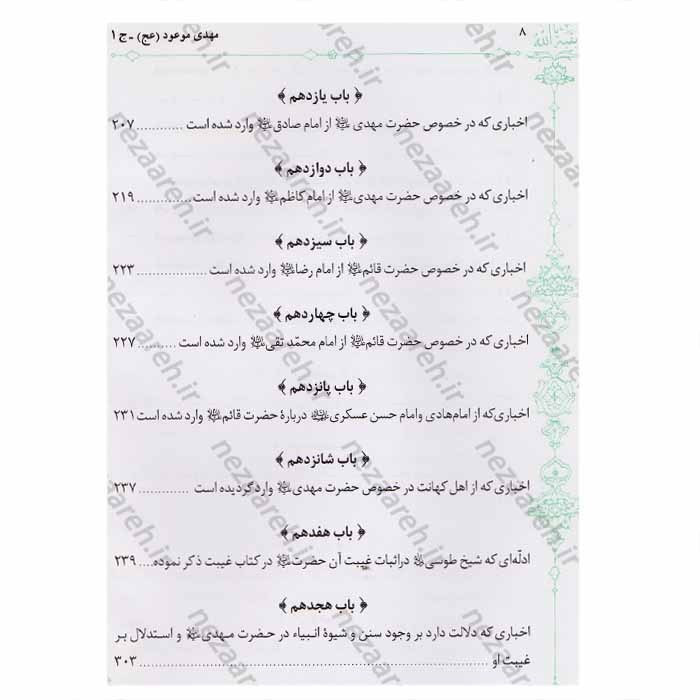 ۸
مهدی موعود (عج) - ج ۱
﴿ باب یازدهم ﴾
اخباری که در خصوص حضرت مهدی از امام صادق وارد شده است ............ ۲۰۷
﴿ باب دوازدهم ﴾
اخباری که در خصوص حضرت مهدی از امام کاظم وارد شده است .............. ۲۱۹
﴿ باب سیزدهم ﴾
اخباری که در خصوص حضرت قائم از امام رضا وارد شده است .................. ۲۲۳
﴿ باب چهاردهم ﴾
اخباری که در خصوص حضرت قائم از امام محمّد تقی وارد شده است .......... ۲۲۷
﴿ باب پانزدهم ﴾
اخباری‌که از امام‌هادی وامام حسن عسکری دربارهٔ حضرت قائم وارد شده است ۲۳۱
﴿ باب شانزدهم ﴾
اخباری که از اهل کهانت در خصوص حضرت مهدی وارد گردیده است ............. ۲۳۷
﴿ باب هفدهم ﴾
ادلّه‌ای که شیخ طوسی در اثبات غیبت آن حضرت در کتاب غیبت ذکر نموده.... ۲۳۹
﴿ باب هجدهم ﴾
اخباری که دلالت دارد بر وجود سنن و شیوهٔ انبیاء در حضرت مهدی و استدلال بر
غیبت او .......................................................................... ۳۰۳
nezaareh.ir